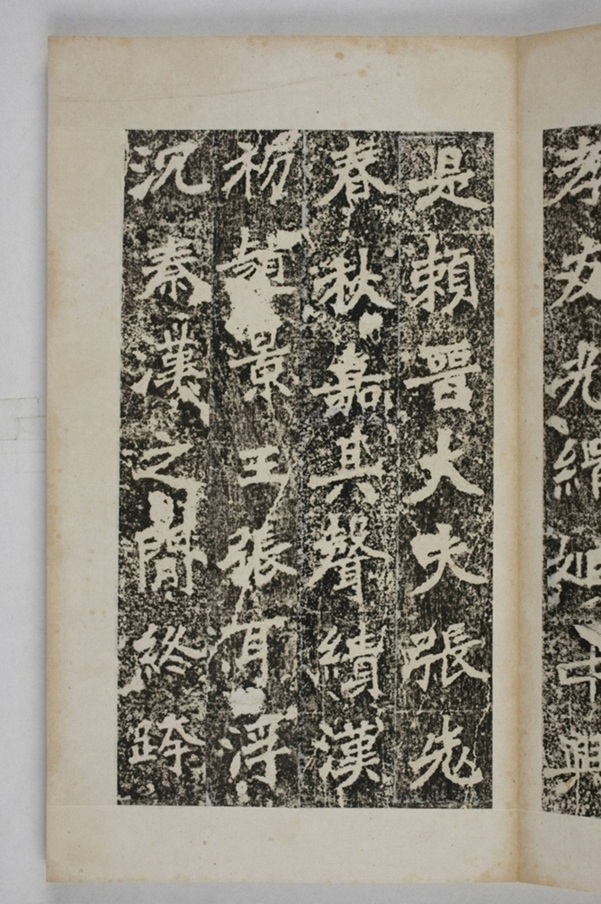 孝友光緝姬中興
是賴晉大夫張老
春秋嘉其聲績漢
初趙景王張耳浮
沉秦漢之間終跨